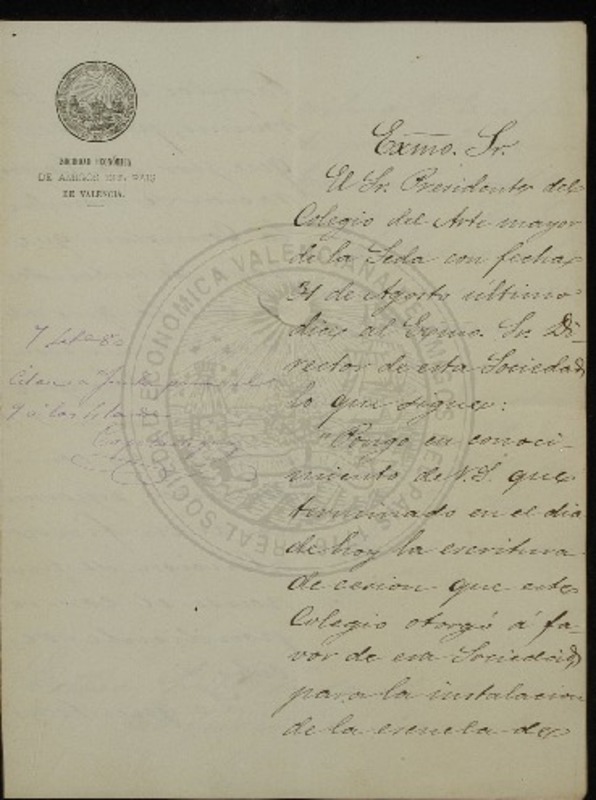 SOCIEDAD ECONÓMICA
DE AMIGOS DEL PAIS
DE VALENCIA.
Exmo. Sr.
El Sr. Presidente del
Colegio del Arte mayor
de la Seda con fecha
31 de Agosto último
dice al Exmo. Sr. Di-
rector de esta Sociedad
lo que sigue:
"Pongo en conoci-
miento de V.S. que
terminado en el dia
de hoy la escritura
de cesion que este
Colegio otorgó á fa-
vor de esa Sociedad
para la instalacion
de la escuela de
7
REAL SOCIEDAD ECONOMICA VALENCIANA DE AMIGOS DEL PAIS